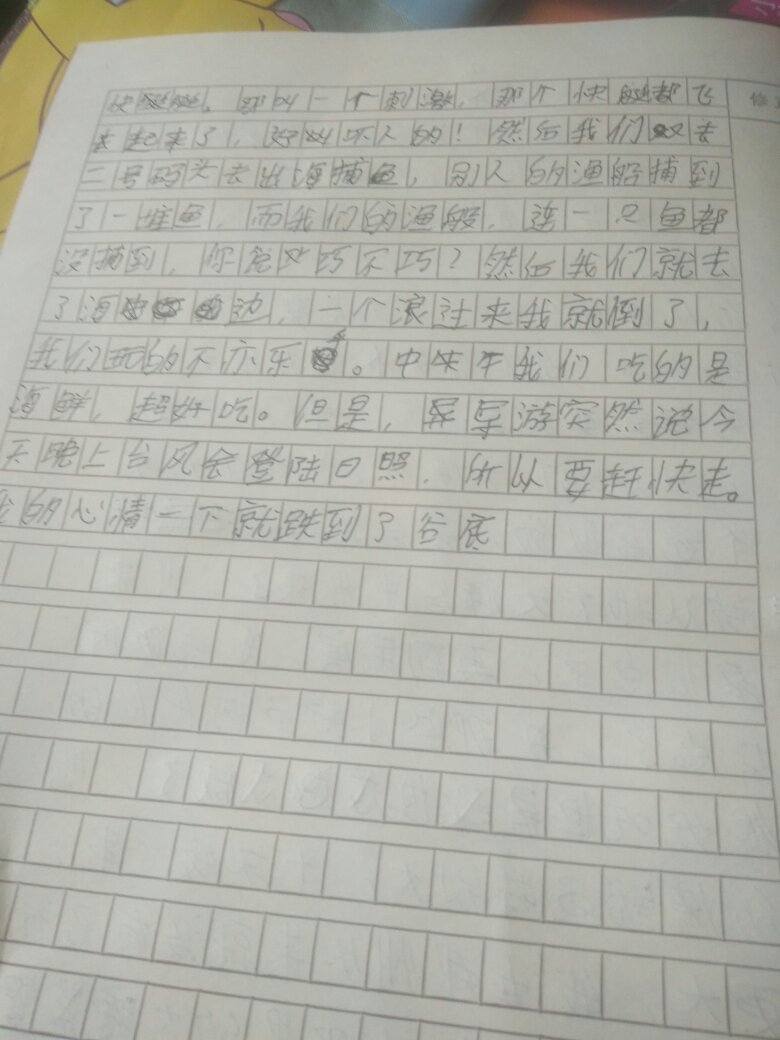 快艇。那叫一个刺激，那个快艇都飞
起来了，好吓人的！然后我们又去
二号码头去出海捕鱼，别人的渔船捕到
了一堆鱼，而我们的渔船，连一只鱼都
没捕到，你说巧不巧？然后我们就去
了海边，一个浪过来我就倒了，
我们玩的不亦乐乎。中午我们吃的是
海鲜，超好吃。但是，导游突然说今
天晚上台风会登陆日照，所以要赶快走。
我的心情一下就跌到了谷底